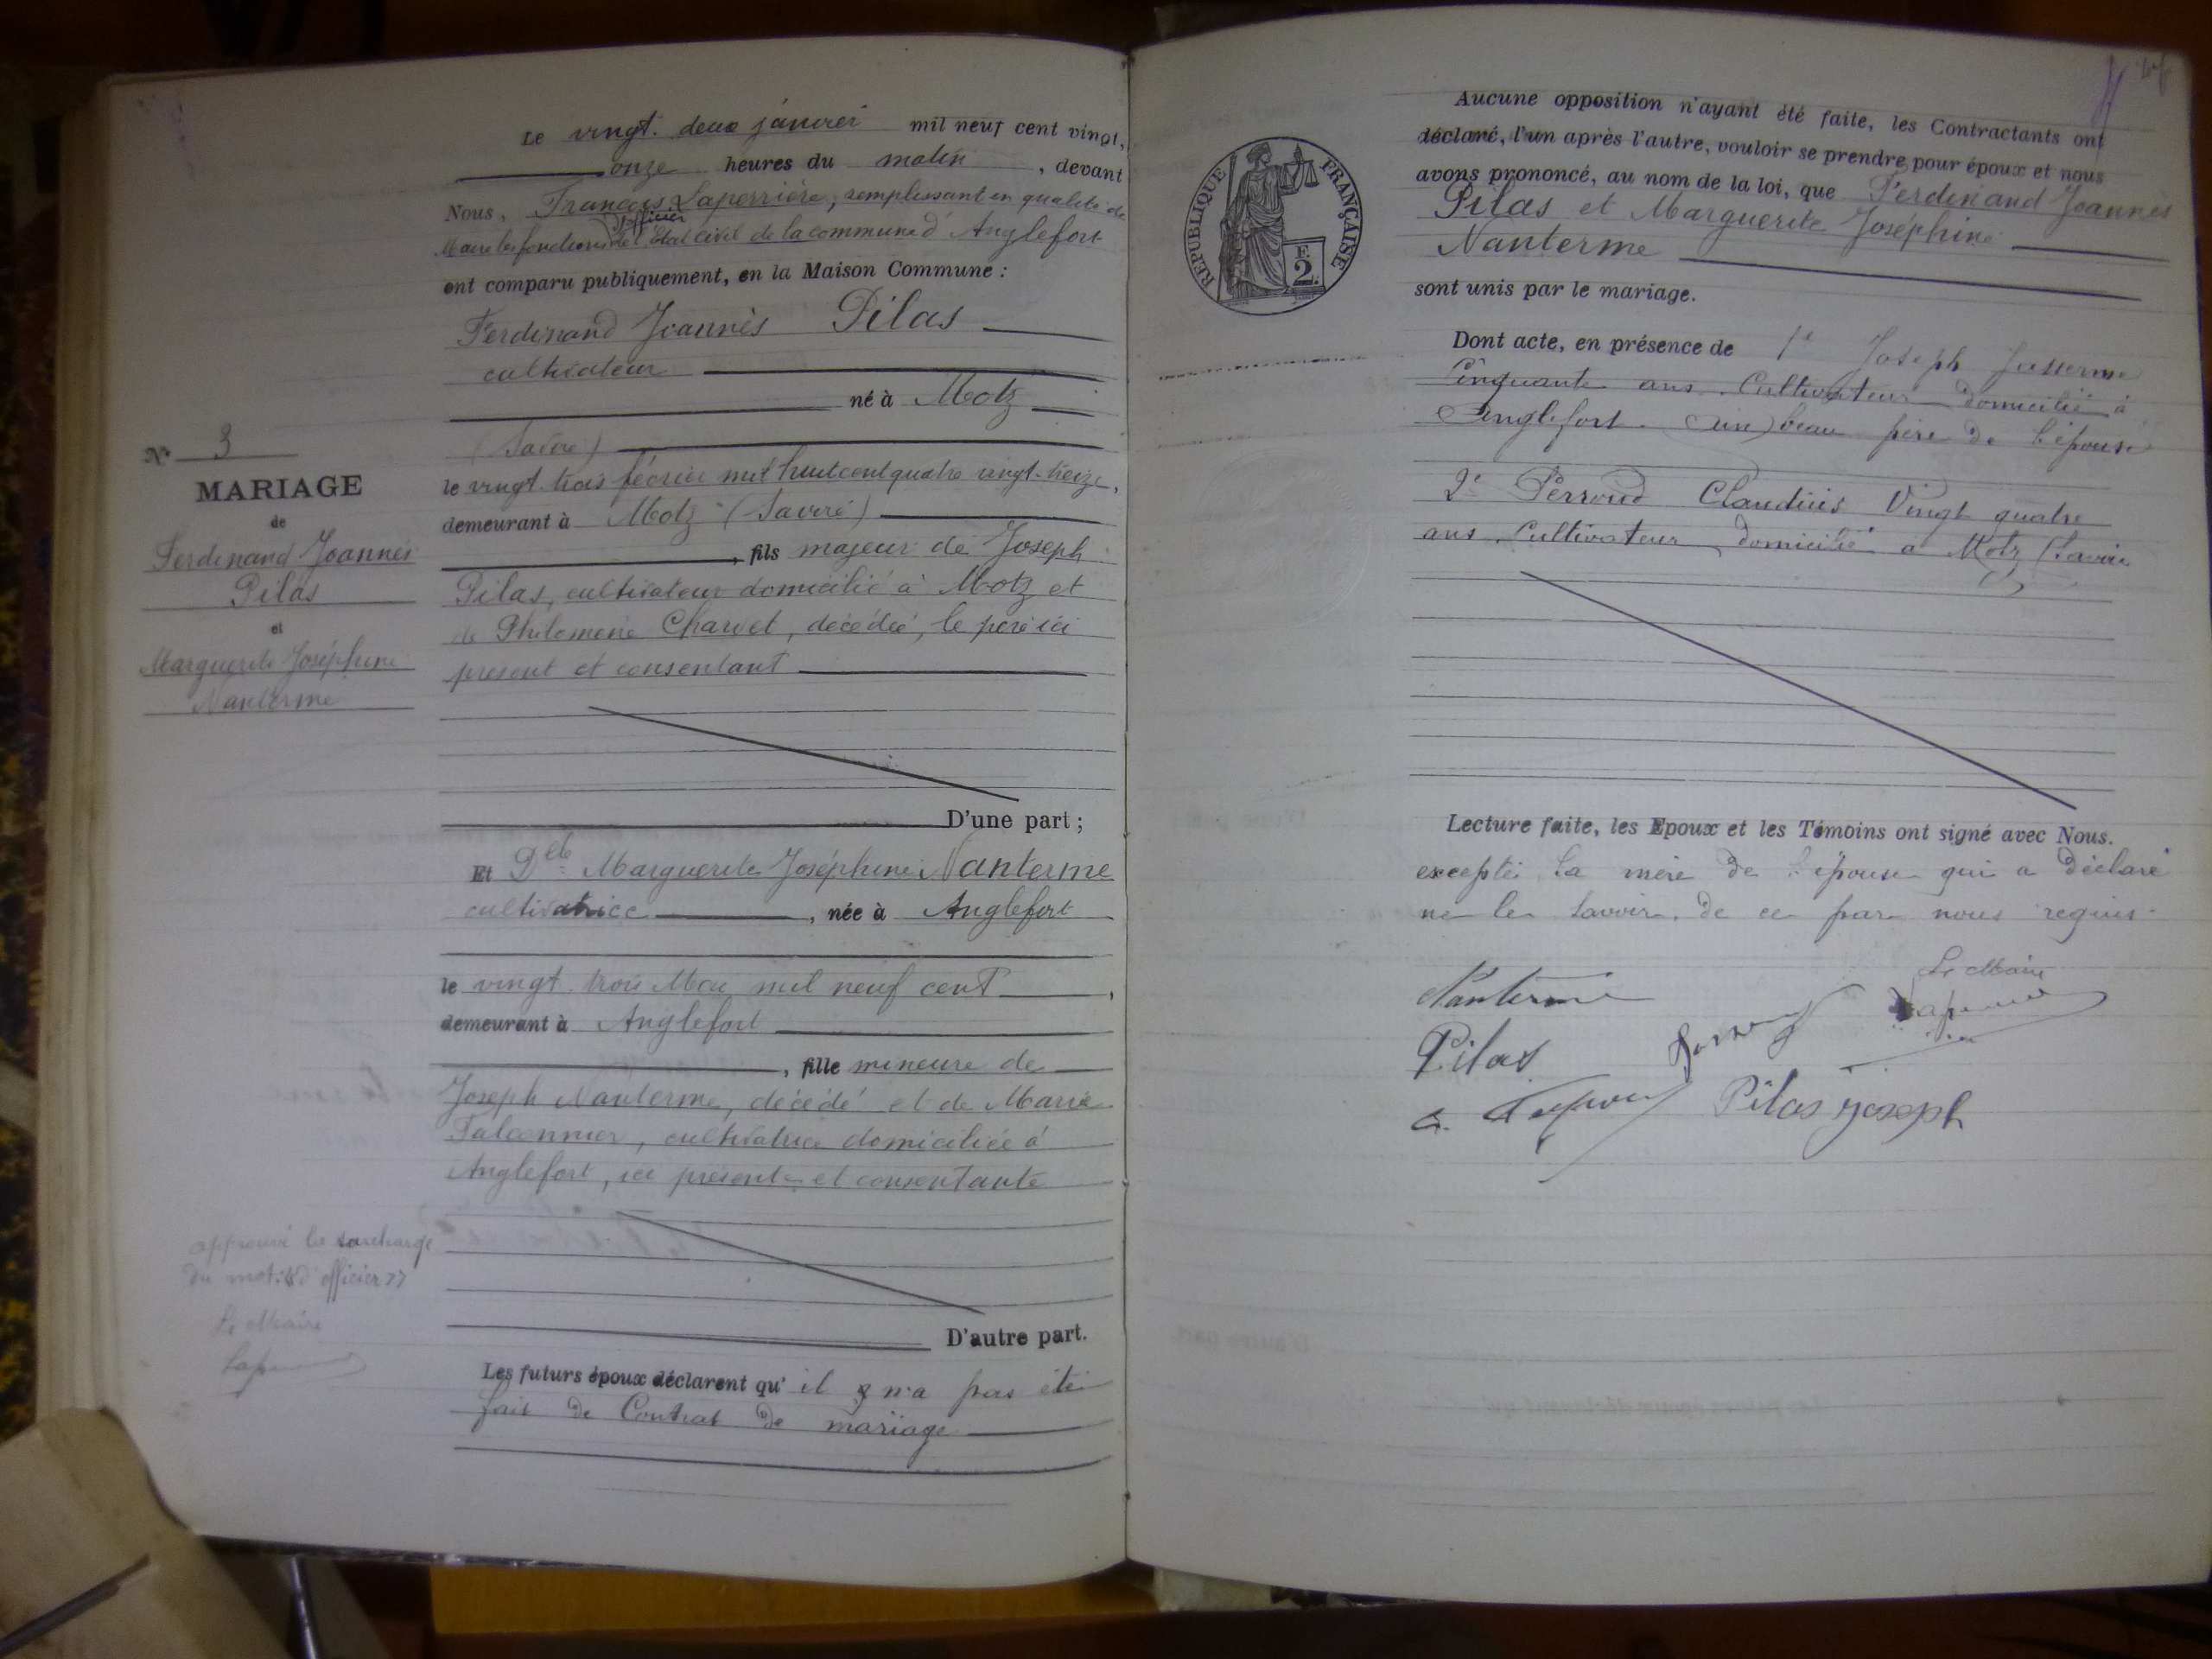 Le vingt-deux janvier mil neuf cent vingt,
onze heures du matin, devant
Nous, François Laperrière, remplissant en qualité de
Maire les fonctions d'officier de l'Etat civil de la commune d'Anglefort
ont comparu publiquement, en la Maison Commune :
Ferdinand Joannès Pilas
cultivateur
né à Motz
(Savoie)
le vingt-trois février mil huit cent quatre vingt-treize,
demeurant à Motz (Savoie)
, fils majeur de Joseph
Pilas, cultivateur domicilié à Motz et
de Philomène Charvet, décédée, le père ici
présent et consentant
D'une part ;
Et Dlle Marguerite Joséphine Nanterme
cultivatrice, née à Anglefort
le vingt-trois Mai mil neuf cent,
demeurant à Anglefort
, fille mineure de
Joseph Nanterme, décédé et de Marie
Falconnier, cultivatrice domiciliée à
Anglefort, ici présente et consentante
D'autre part.
Les futurs époux déclarent qu'il n'a pas été
fait de Contrat de mariage
N° 3
MARIAGE
de
Ferdinand Joannès
Pilas
et
Marguerite Joséphine
Nanterme
approuvé la surcharge
du mot « d'officier »
Le Maire
24
Aucune opposition n'ayant été faite, les Contractants ont
déclaré, l'un après l'autre, vouloir se prendre pour époux et nous
avons prononcé, au nom de la loi, que Ferdinand Joannès
Pilas et Marguerite Joséphine
Nanterme
sont unis par le mariage.
REPUBLIQUE FRANÇAISE
F.
2.
Dont acte, en présence de 1° Joseph
Cinquante ans Cultivateur domicilié à
Anglefort beau père de l'épouse
2° Perroud Claudius Vingt quatre
ans Cultivateur domicilié à Motz (Savoie
Lecture faite, les Epoux et les Témoins ont signé avec Nous.
excepté la mère de l'épouse qui a déclaré
ne le savoir, de ce par nous requis.
Nanterme
Le Maire
Pilas
Pilas joseph